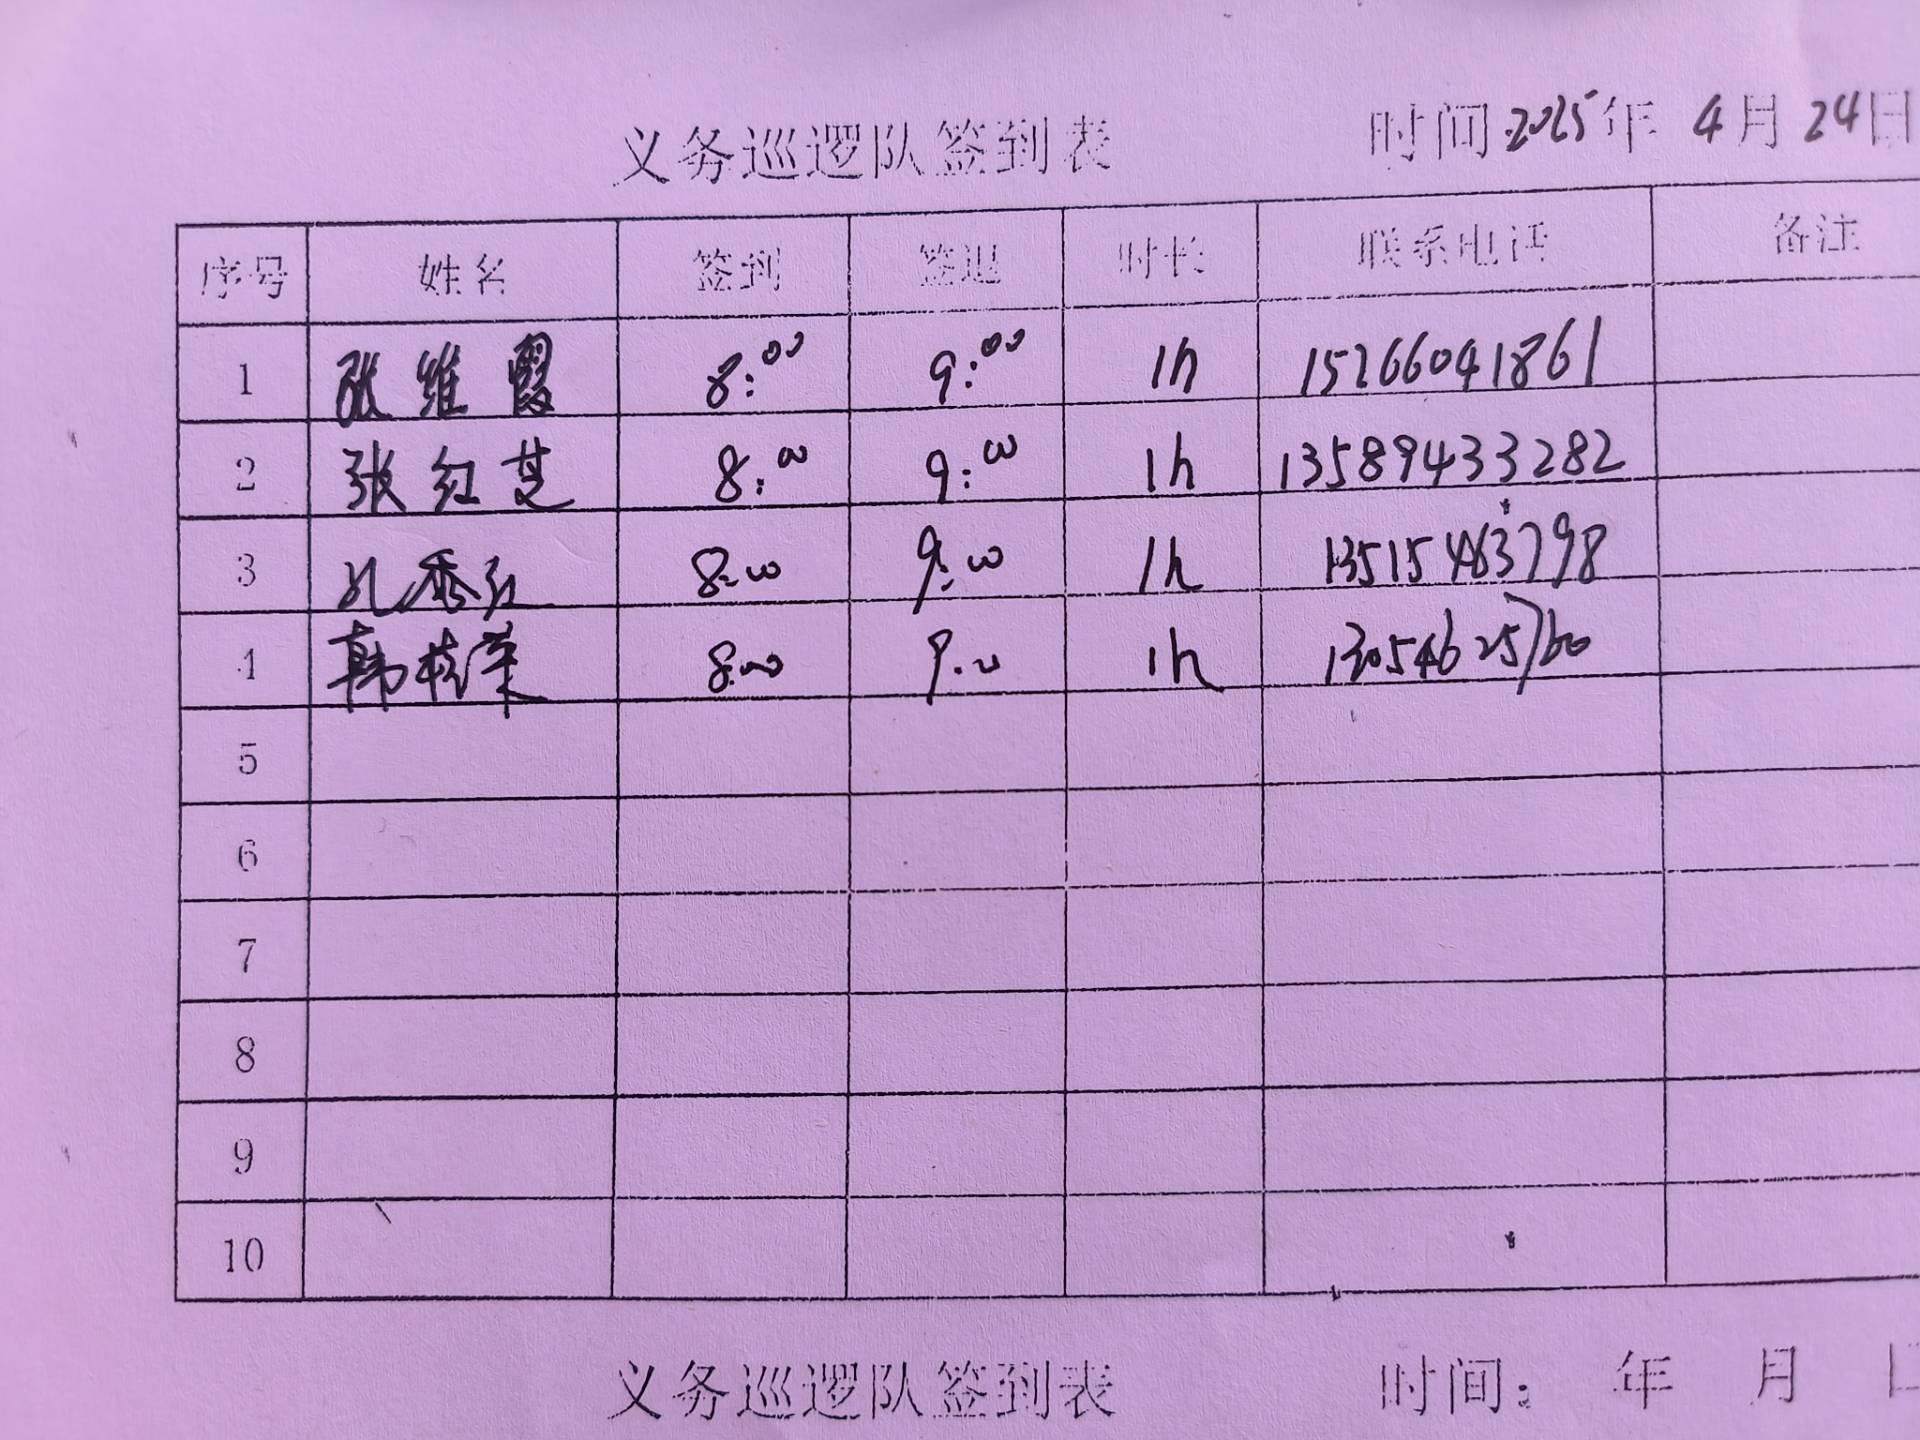 义务巡逻队签到表 时间 2025年 4月 24日
序号 姓名 签到 签退 时长 联系电话 备注
1 张维霞 8:00 9:00 1h 15266041861
2 张红芝 8:00 9:00 1h 13589433282
3 孔秀红 8:00 9:00 1h 13515463798
4 韩桂荣 8:00 9:00 1h 13054625760
5
6
7
8
9
10
义务巡逻队签到表 时间: 年 月 日